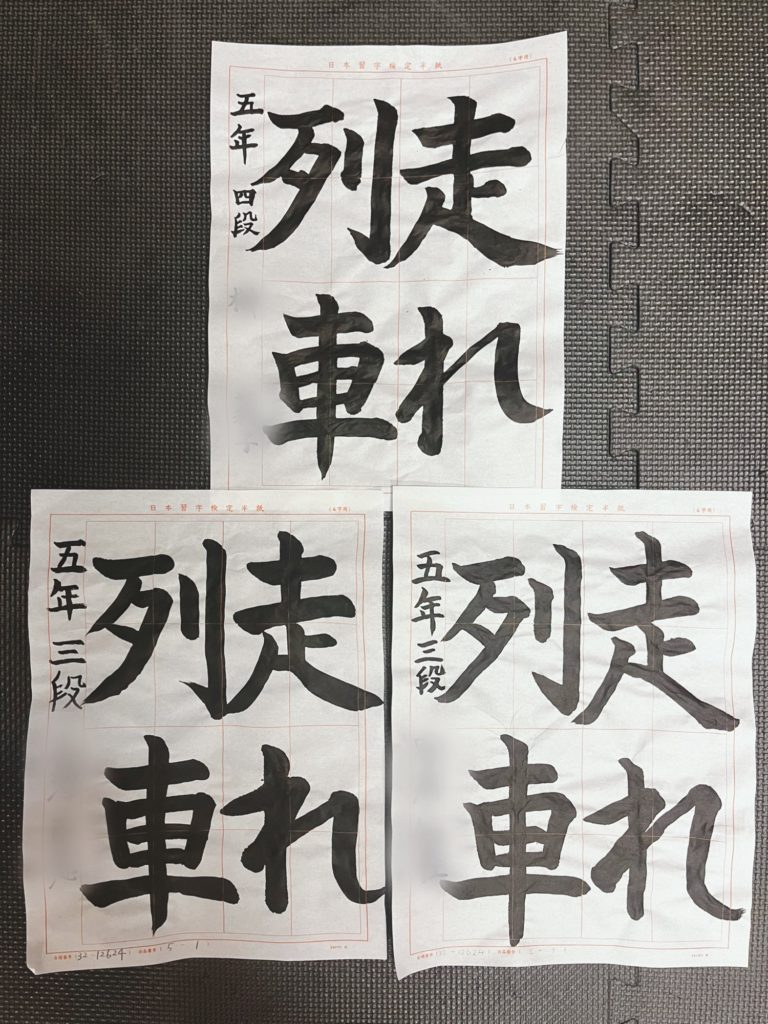 日本習字検定半紙
走れ
列車
五年 四段
日本習字検定半紙
走れ
列車
五年 三段
(32-12624) (5-1)
日本習字検定半紙
走れ
列車
五年 三段